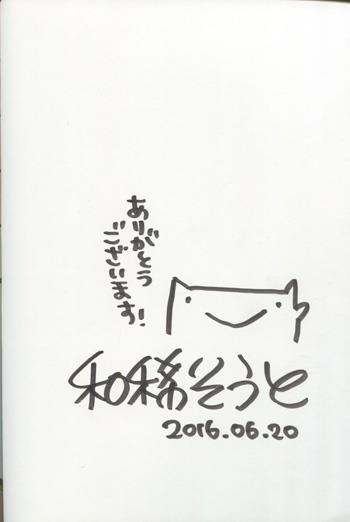 ありがとう
ございます!
和稀そうと
2016.06.20